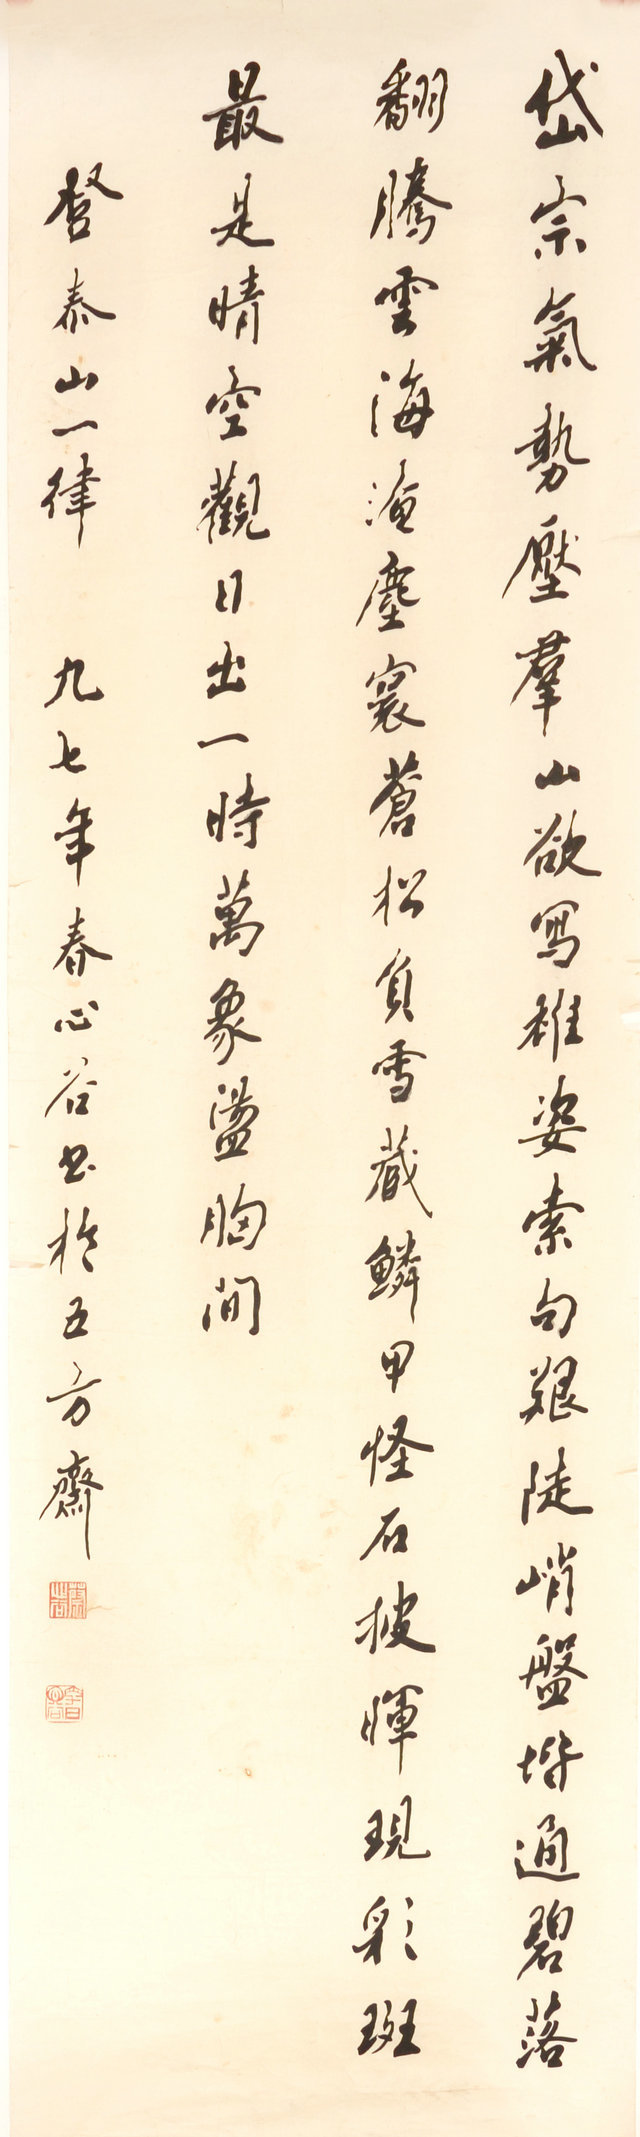 岱宗氣勢壓羣山欲寫雄姿索句艱陡峭盤堦通碧落
翻騰雲海淹塵寰蒼松負雪藏鱗甲怪石披暉現彩斑
最是晴空觀日出一時萬象盪胸間
登泰山一律 九七年春心谷书於五方齋